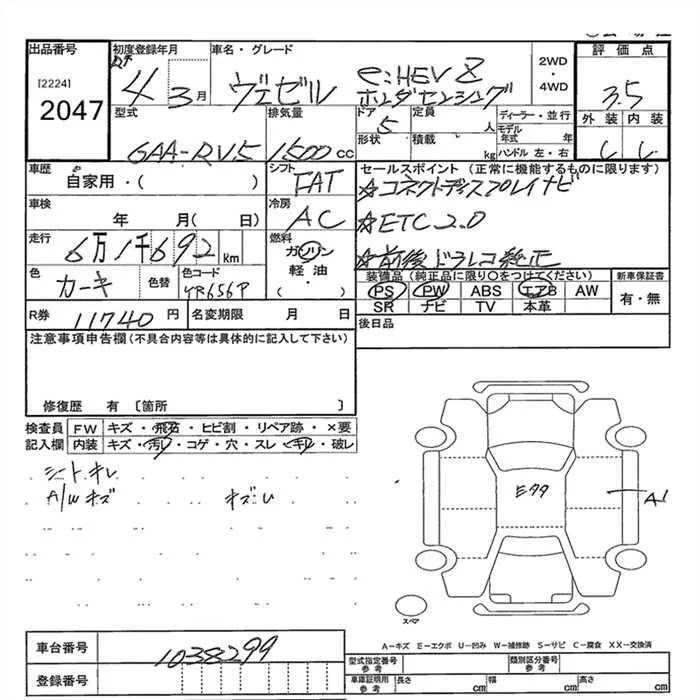 出品番号 初度登録年月 車名・グレード 2WD ・ 4WD 評価点
[2224] 2047
R 4 3月 ヴェゼル e:HEV Z ホンダセンシング 3.5
型式 排気量 ドア 定員 人 ディーラー・並行 外装 内装
6AA-RV5 1500 cc 5 形状 積載 kg モデル年式 年 ハンドル 左・右 C C
車歴 自家用・( ) シフト FAT セールスポイント (正常に機能するものに限ります)
☆コネクトディスプレイナビ
車検 年 月( 日) 冷房 AC
☆ETC2.0
走行 6万1千692 km 燃料 ガソリン 軽油 ・( )
☆前後ドラレコ純正
色 カーキ 色替 色コード YR656P
装備品(純正品に限り○をつけてください) 新車保証書
PS PW ABS エアB AW 有・無
SR ナビ TV 本革
R券 11740 円 名変期限 月 日 後日品
注意事項申告欄(不具合内容等は具体的に記入して下さい)
修復歴 有 〔箇所 〕
検査員 FW キズ・飛石・ヒビ割・リペア跡・×要
記入欄 内装 キズ・汚レ・コゲ・穴・スレ・キレ・破レ
シートキレ
A/Wキズ
E-99
A1
スペア
A-キズ E-エクボ U-凹み W-補修跡 S-サビ C-腐食 XX-交換済
車台番号 1038299
型式指定番号 参考 類別区分番号 参考
登録番号
車庫証明用 参考 長さ cm 幅 cm 高さ cm